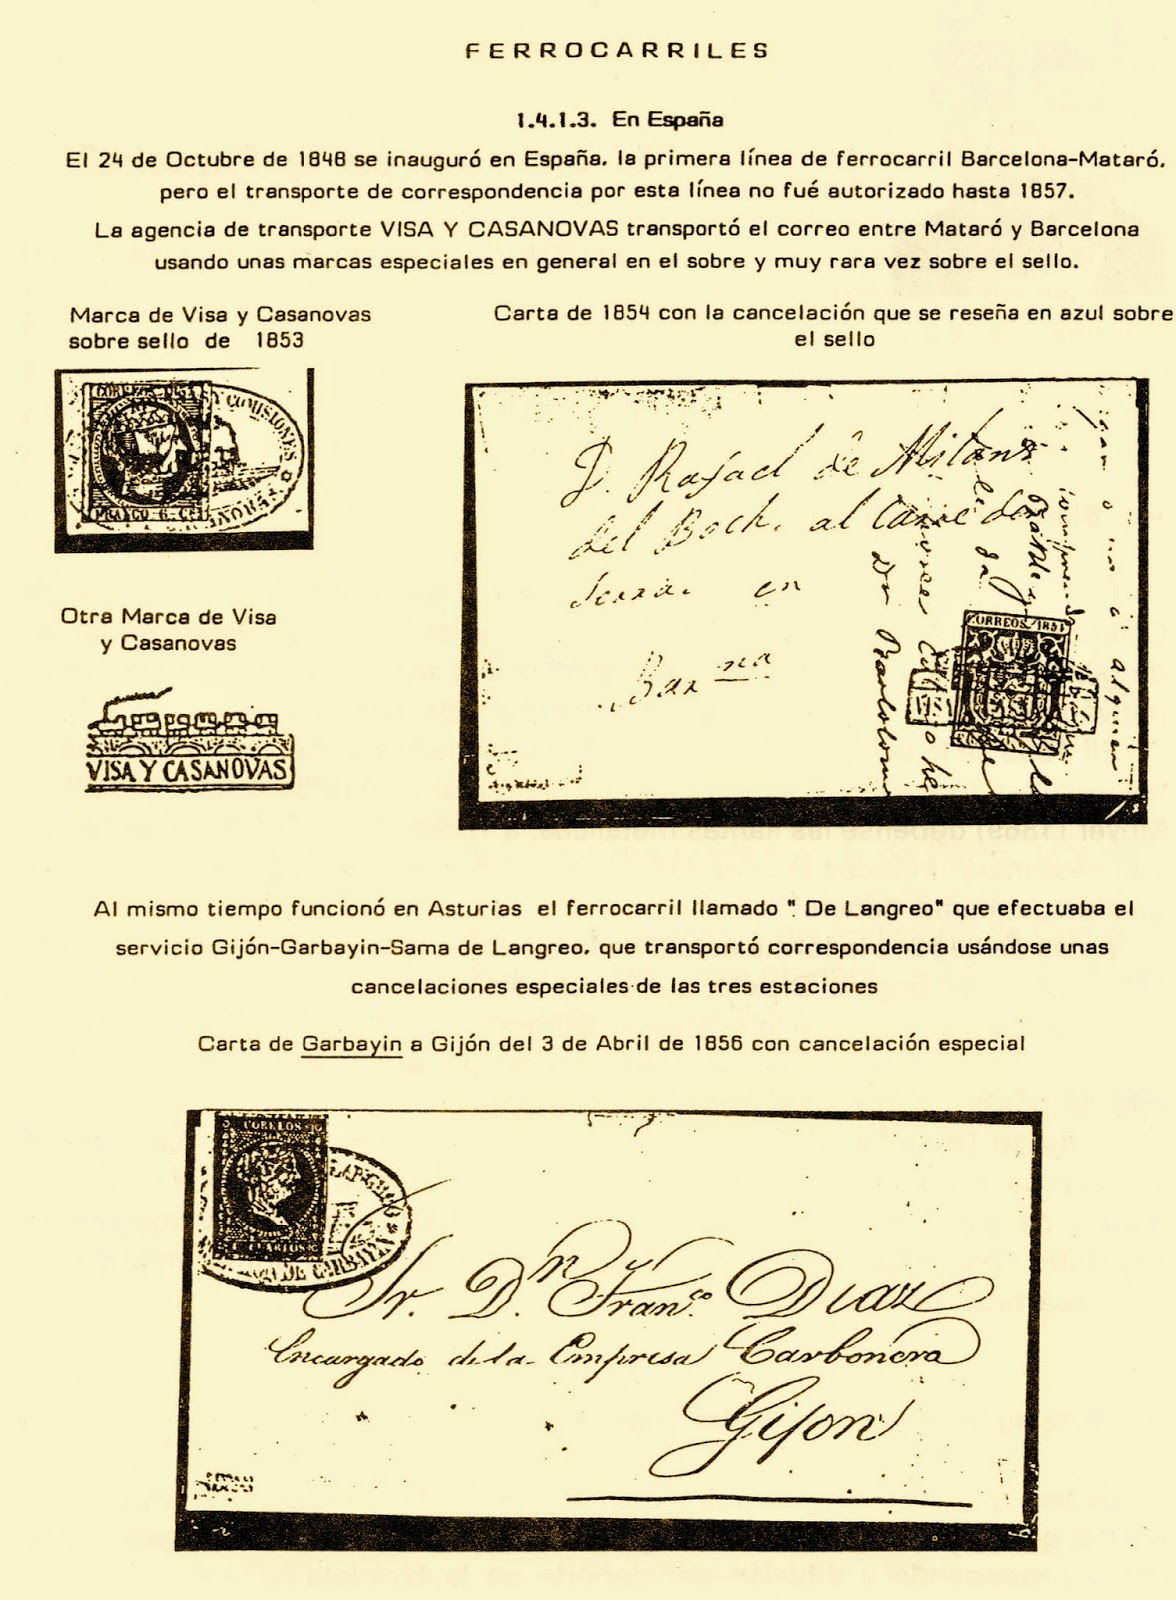 FERROCARRILES
1.4.1.3. En España
El 24 de Octubre de 1848 se inauguró en España, la primera línea de ferrocarril Barcelona-Mataró,
pero el transporte de correspondencia por esta línea no fué autorizado hasta 1857.
La agencia de transporte VISA Y CASANOVAS transportó el correo entre Mataró y Barcelona
usando unas marcas especiales en general en el sobre y muy rara vez sobre el sello.
Marca de Visa y Casanovas
sobre sello de 1853
Carta de 1854 con la cancelación que se reseña en azul sobre
el sello
Y COMISIONES
FRANCO 6 CS
D. Rafael de Milans
del Boch. al Carre de
en
Barna
CORREOS 1854
alguen
Otra Marca de Visa
y Casanovas
VISA Y CASANOVAS
Al mismo tiempo funcionó en Asturias el ferrocarril llamado " De Langreo" que efectuaba el
servicio Gijón-Garbayin-Sama de Langreo, que transportó correspondencia usándose unas
cancelaciones especiales de las tres estaciones
Carta de Garbayin a Gijón del 3 de Abril de 1856 con cancelación especial
CORREOS
DE CARBAYIN
Sr. Dn. Franco. Diaz
Encargado de la Empresa Carbonera
Gijon